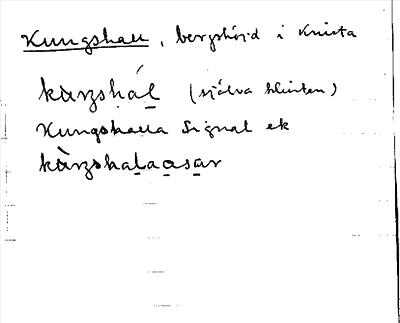 Kungshall, bergshöjd i Knista
kʉŋshál (själva klinten)
Kungshalla Signal ek
kʉ̀ŋshalaasar